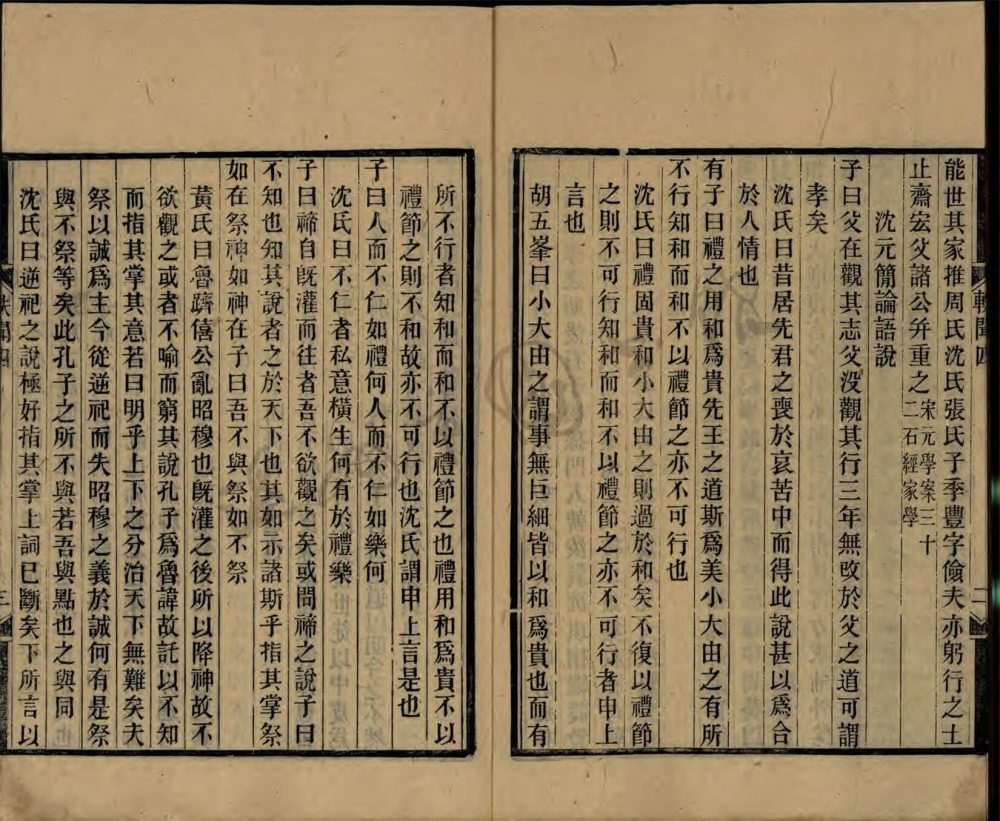 能世其家推周氏沈氏張氏子季豐字儉夫亦躬行之士
止齋宏父諸公幷重之宋元學案三十二石經家學
沈元簡論語說
子曰父在觀其志父没觀其行三年無攺於父之道可謂
孝矣
沈氏曰昔居先君之喪於哀苦中而得此說甚以爲合
於人情也
有子曰禮之用和爲貴先王之道斯爲美小大由之有所
不行知和而和不以禮節之亦不可行也
沈氏曰禮固貴和小大由之則過於和矣不復以禮節
之則不可行知和而和不以禮節之亦不可行者申上
言也
胡五峯曰小大由之謂事無巨細皆以和爲貴也而有
二
所不行者知和而和不以禮節之也禮用和爲貴不以
禮節之則不和故亦不可行也沈氏謂申上言是也
子曰人而不仁如禮何人而不仁如樂何
沈氏曰不仁者私意橫生何有於禮樂
子曰禘自旣灌而往者吾不欲觀之矣或問禘之說子曰
不知也知其說者之於天下也其如示諸斯乎指其掌祭
如在祭神如神在子曰吾不與祭如不祭
黃氏曰魯躋僖公亂昭穆也旣灌之後所以降神故不
欲觀之或者不喻而窮其說孔子爲魯諱故託以不知
而指其掌其意若曰明乎上下之分治天下無難矣夫
祭以誠爲主今從逆祀而失昭穆之義於誠何有是祭
與不祭等矣此孔子之所不與若吾與點也之與同
沈氏曰逆祀之說極好指其掌上詞已斷矣下所言以
三